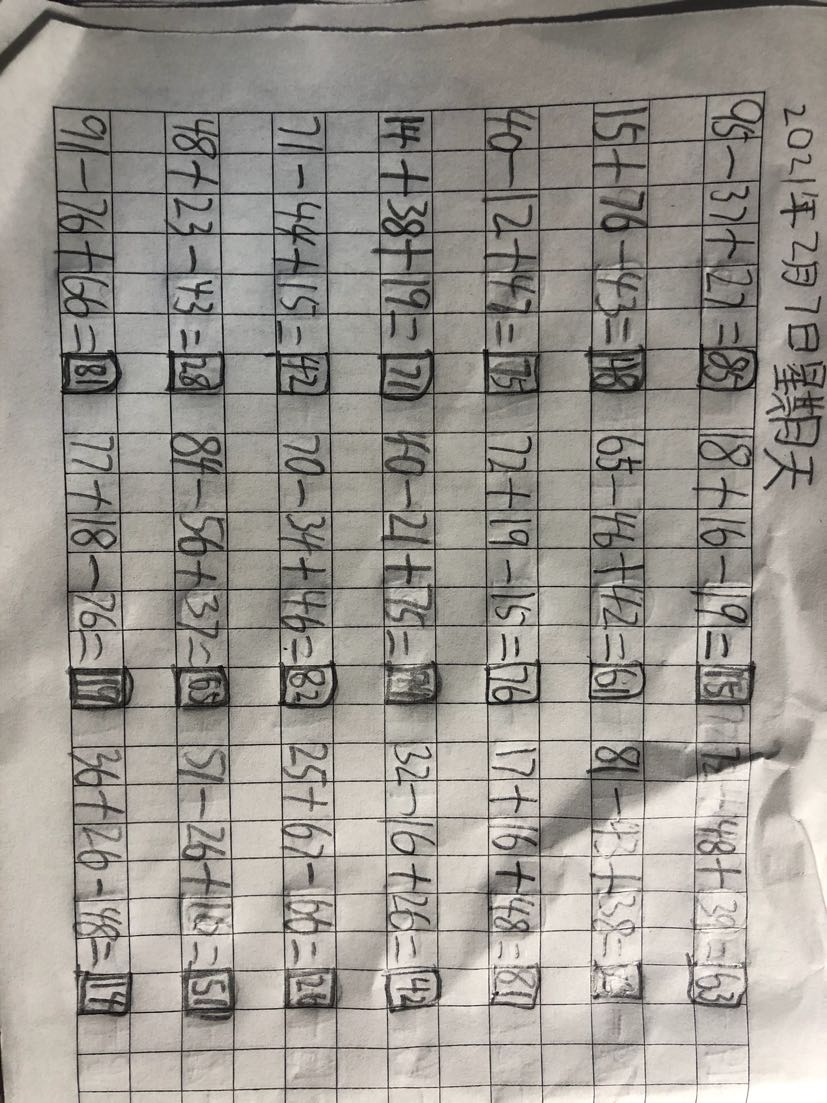 2021年2月7日星期天
95-37+27=85 18+16-19=15 72-48+39=63
15+76-43=48 65-46+42=61 81-43+38=
40-12+47=75 72+19-15=76 17+16+48=81
14+38+19=71 40-21+75= 32-16+26=42
71-44+15=42 70-34+46=82 25+67-66=
48+23-43=28 84-56+37=65 51-26+ =51
91-76+66=81 77+18-76=19 36+26-48=14